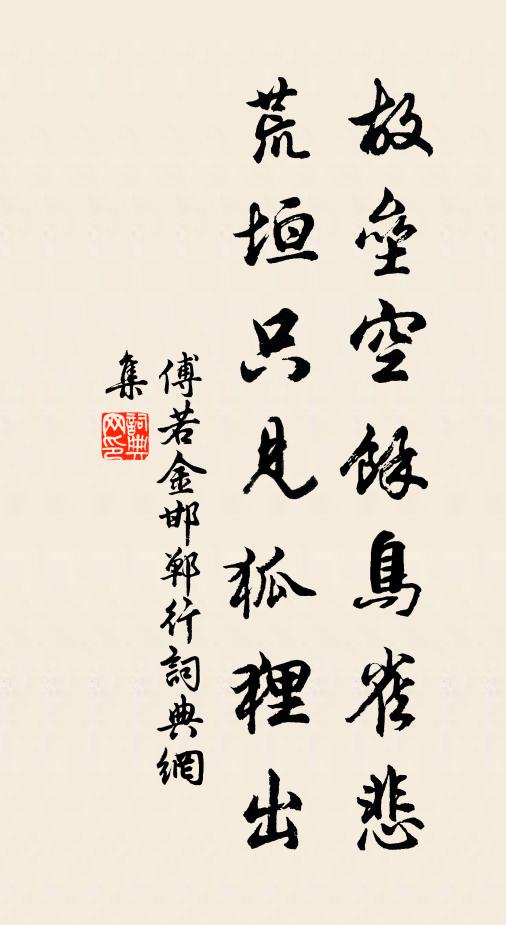 故壘空餘鳥雀悲
荒垣只見狐狸出
傅若金邯鄲行詞典網
集
詞典網印